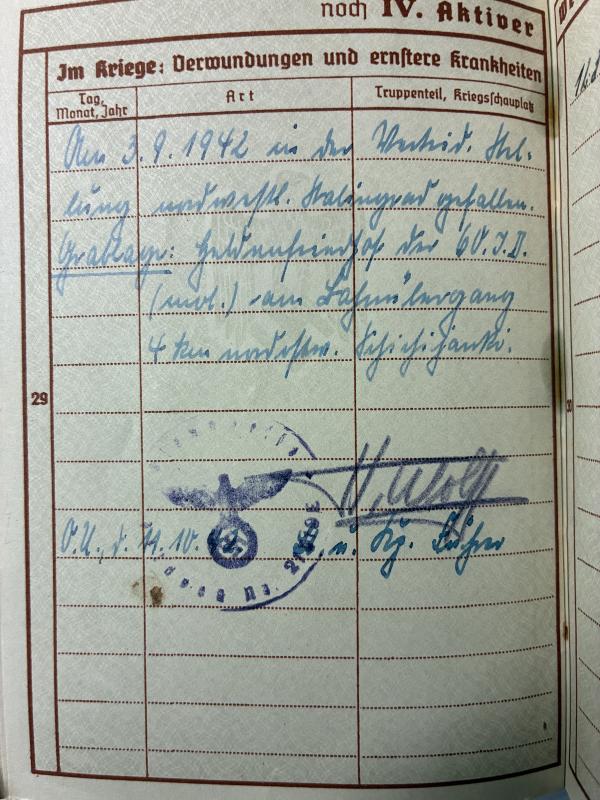 noch IV. Aktiver
Im Kriege: Verwundungen und ernstere Krankheiten
Tag, Monat, Jahr
Art
Truppenteil, Kriegsschauplatz
Am 3.9.1942 in der Verteid. Stel-
lung nordwestl. Stalingrad gefallen.
Grablage: Heldenfriedhof der 60.I.D.
(mot.) am Bahnübergang
4 km nordostw.
29
O.U., d. 10.
u. Kp. Führer